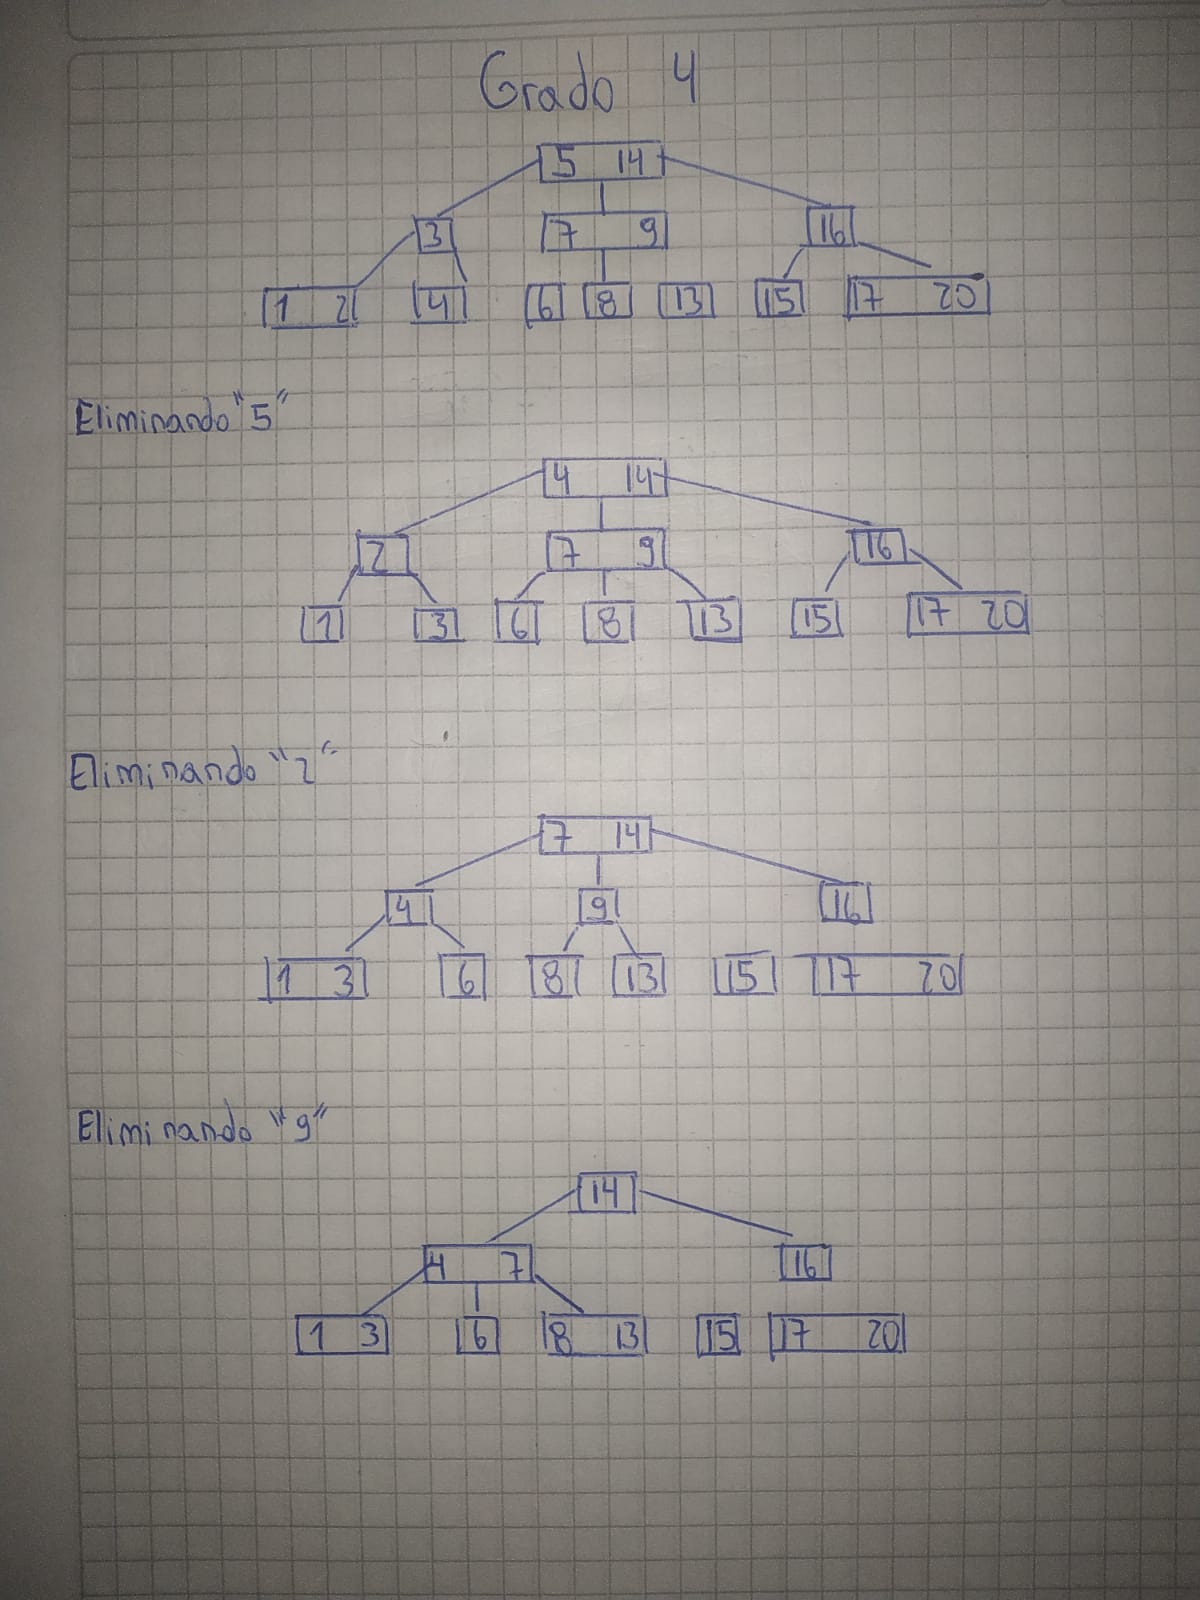 Grado 4
5 14
3 7 9 16
1 2 4 6 8 13 15 17 20
Eliminando "5"
4 14
2 7 9 16
1 3 6 8 13 15 17 20
Eliminando "2"
7 14
4 9 16
1 3 6 8 13 15 17 20
Eliminando "9"
14
4 7 16
1 3 6 8 13 15 17 20